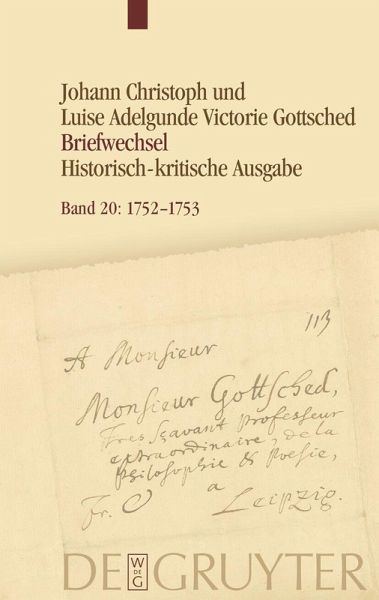 Johann Christoph und
Luise Adelgunde Victorie Gottsched
Briefwechsel
Historisch-kritische Ausgabe
Band 20: 1752–1753
113
A Monsieur
Monsieur Gottsched,
Tres Sçavant Professeur
extraordinaire, de la
Philosophie & Poesie,
Fr. C a Leipzig.
DE GRUYTER
W
DE
G